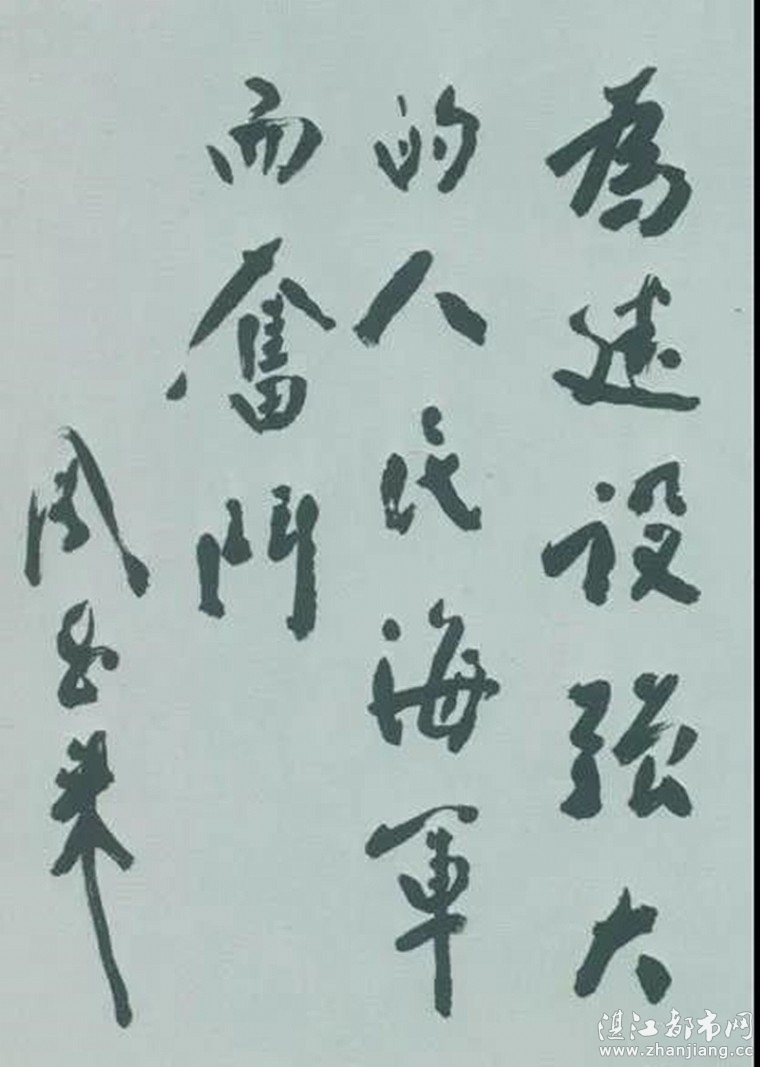 為建设強大
的人民海軍
而奮鬥
周恩来
湛江都市网
www.zhanjiang.cc